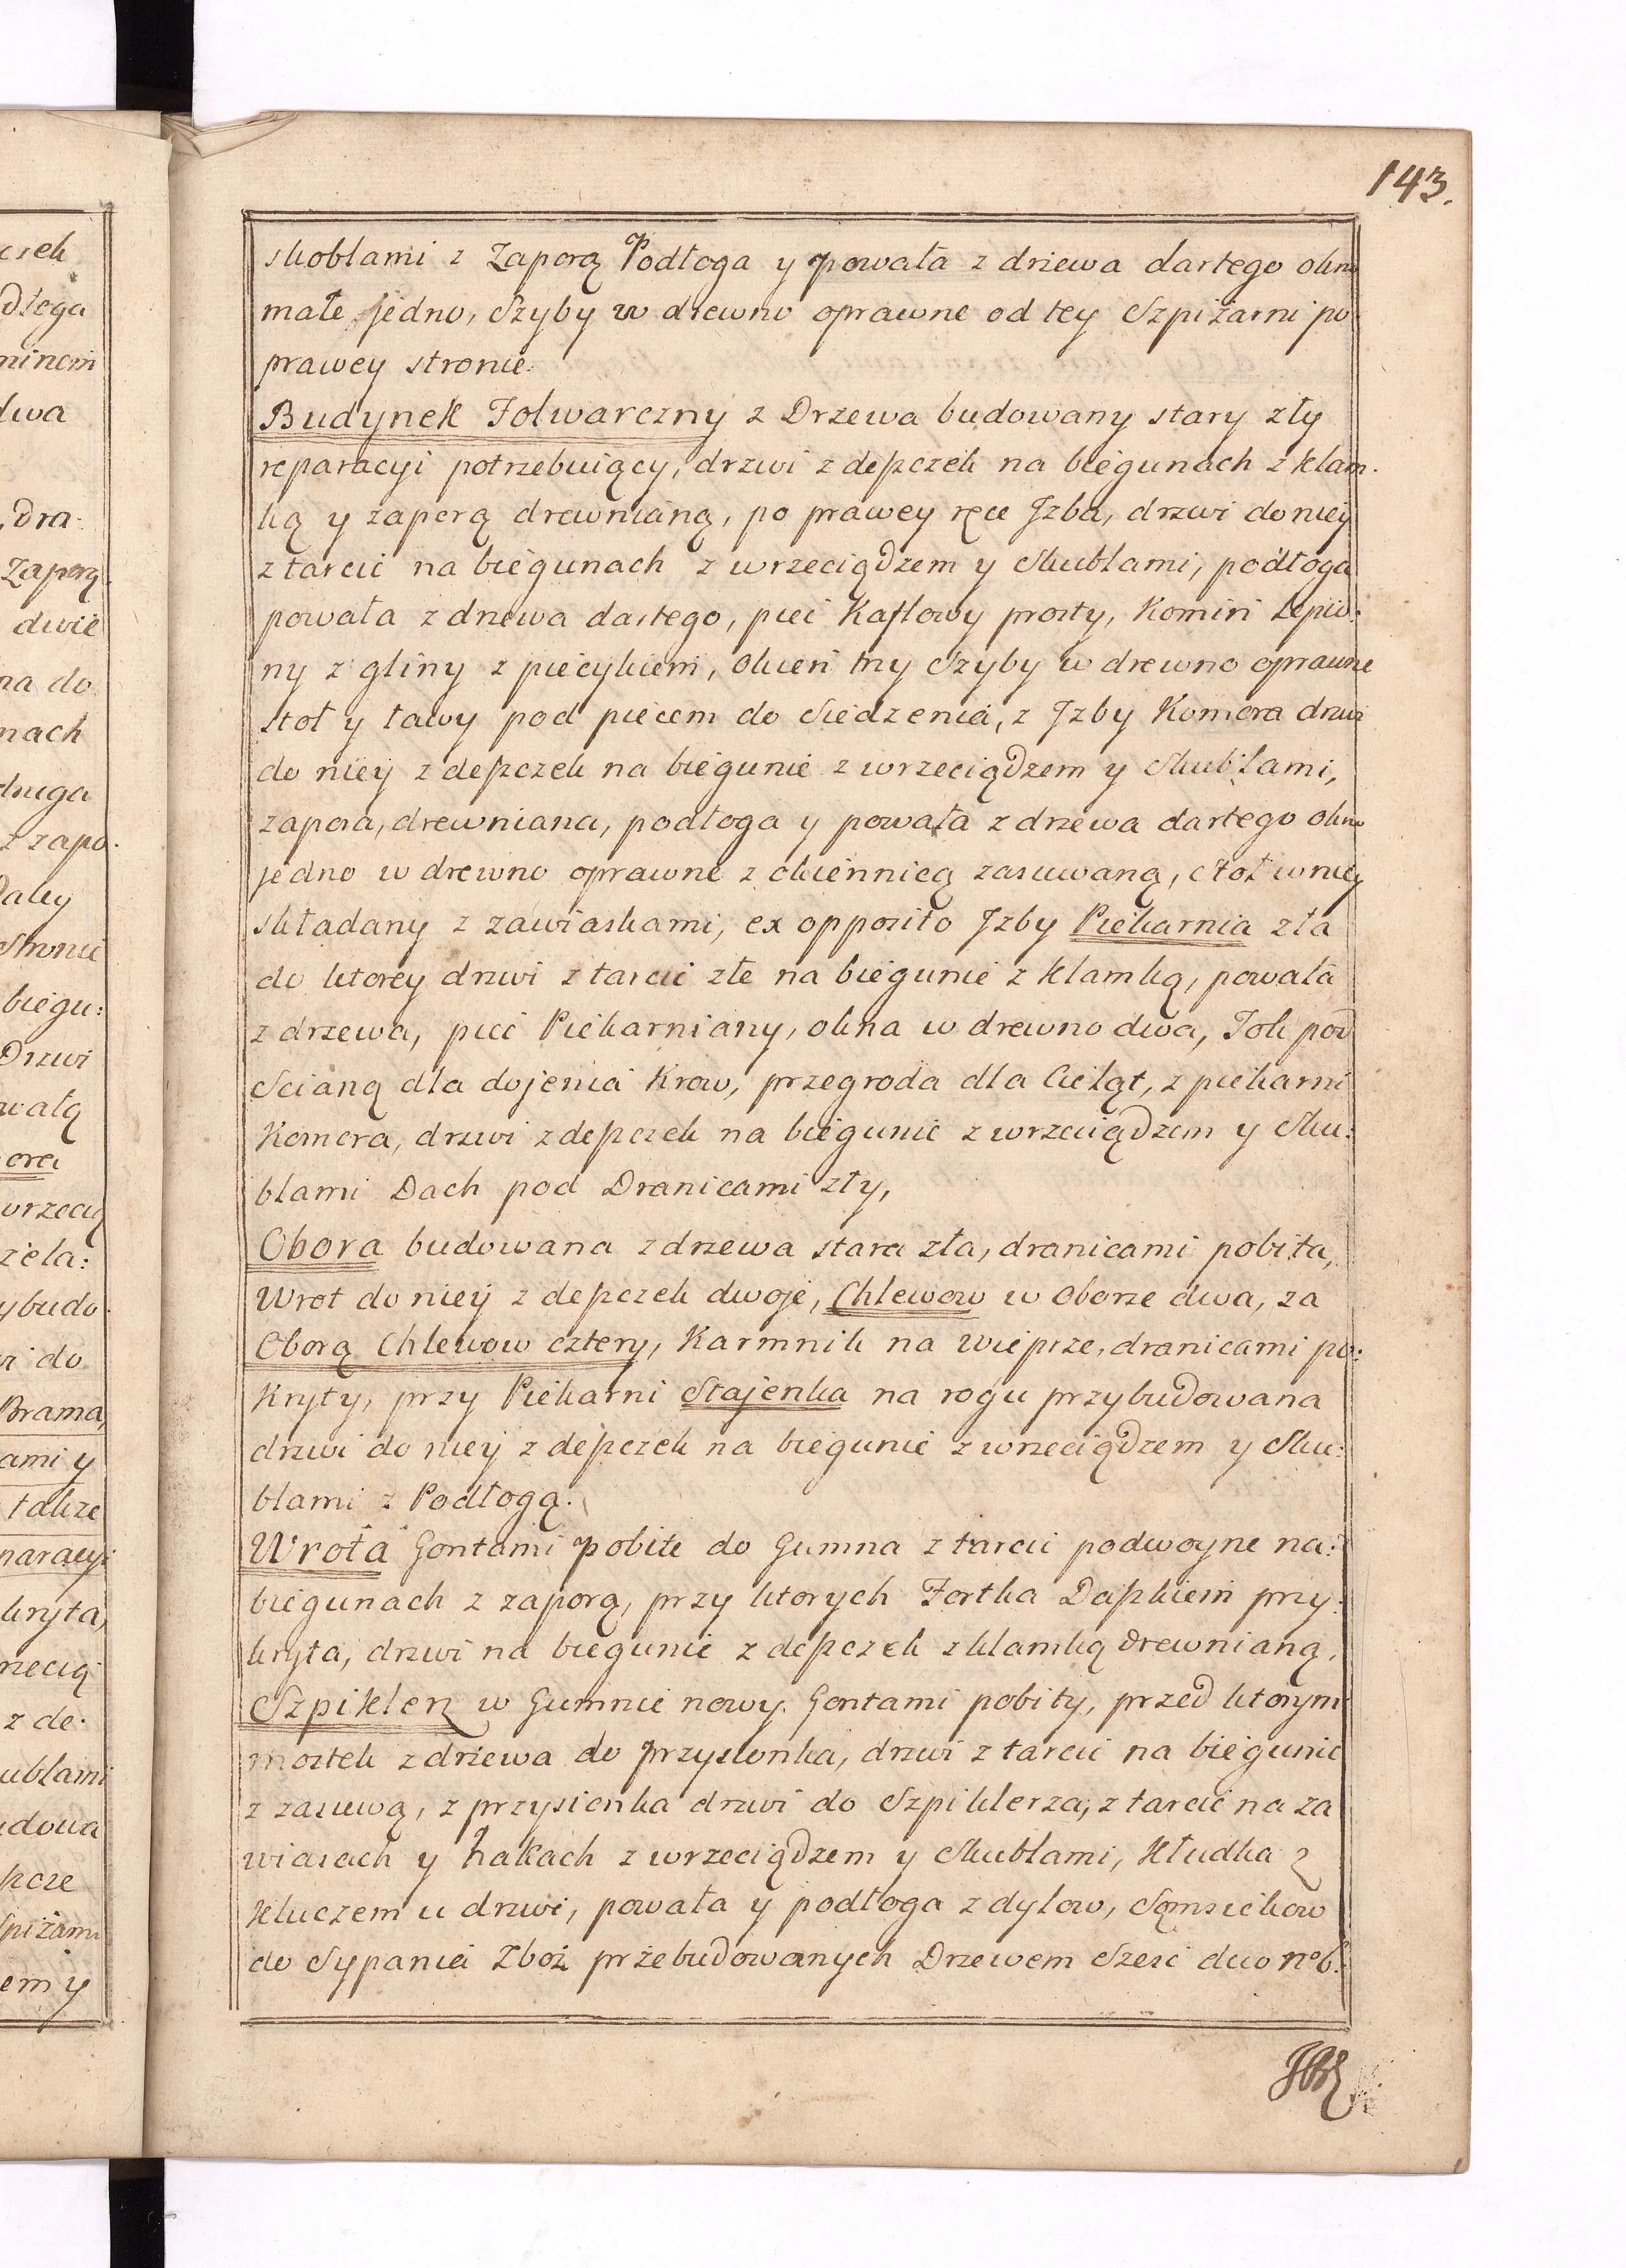 143.
skoblami z Zaporą Podłoga y powała z drzewa dartego okno
małe jedno, Szyby w drewno oprawne od tey Szpiżarni po
prawey stronie.
Budynek Folwarczny z Drzewa budowany stary zły
reparacyi potrzebuiący, drzwi z depczek na biegunach z klam-
ką y zaporą drewnianą, po prawey ręce Jzba, drzwi do niey
z tarcic na biegunach z wrzeciądzem y Skublami, podłoga
powała z drzewa dartego, piec Kaflowy prosty, Komin Lepio:
ny z gliny z piecykiem, Okien trzy Szyby w drewno oprawne
stoł y ławy pod piecem do Siedzenia, z Jzby Komora drzwi
do niey z depczek na biegunie z wrzeciądzem y Skublami,
zapora, drewniana, podłoga y powała z drzewa dartego okno
jedno w drewno oprawne z okiennicą zasuwaną, Stoł w niey
składany z zawiaskami, ex opposito Jzby Piekarnia zła
do ktorey drzwi z tarcic złe na biegunie z klamką, powała
z drzewa, piec Piekarniany, okna w drewno dwa, Tok pod
Scianą dla dojenia Krow, przegroda dla Cieląt, z piekarni
Komora, drzwi z depczek na biegunie z wrzeciądzem y Sku:
blami Dach pod Dranicami zły,
Obora budowana z drzewa stara zła, dranicami pobita,
Wrot do niey z depczek dwoje, Chlewow w Oborze dwa, za
Oborą Chlewow cztery, Karmnik na wieprze, dranicami po:
kryty, przy Piekarni Stajenka na rogu przybudowana
drzwi do niey z depczek na biegunie z wrzeciądzem y Sku:
blami z Podłogą.
Wrota Gontami pobite do Gumna z tarcic podwoyne na:
biegunach z zaporą, przy ktorych Fortka Dapkiem przy:
kryta, drzwi na biegunie z depczek z klamką drewnianą,
Szpiklerz w Gumnie nowy. Gontami pobity, przed ktorym
mostek z drzewa do przysionka, drzwi z tarcic na biegunie
z zasuwą, z przysienka drzwi do Szpiklerza, z tarcic na za
wiasach y hakach z wrzeciądzem y Skublami, Kłudka z
Kluczem u drzwi, powała y podłoga z dylow, Sąmsiekow
do Sypania Zboż przebudowanych Drzewem Sześć duo nº 6.